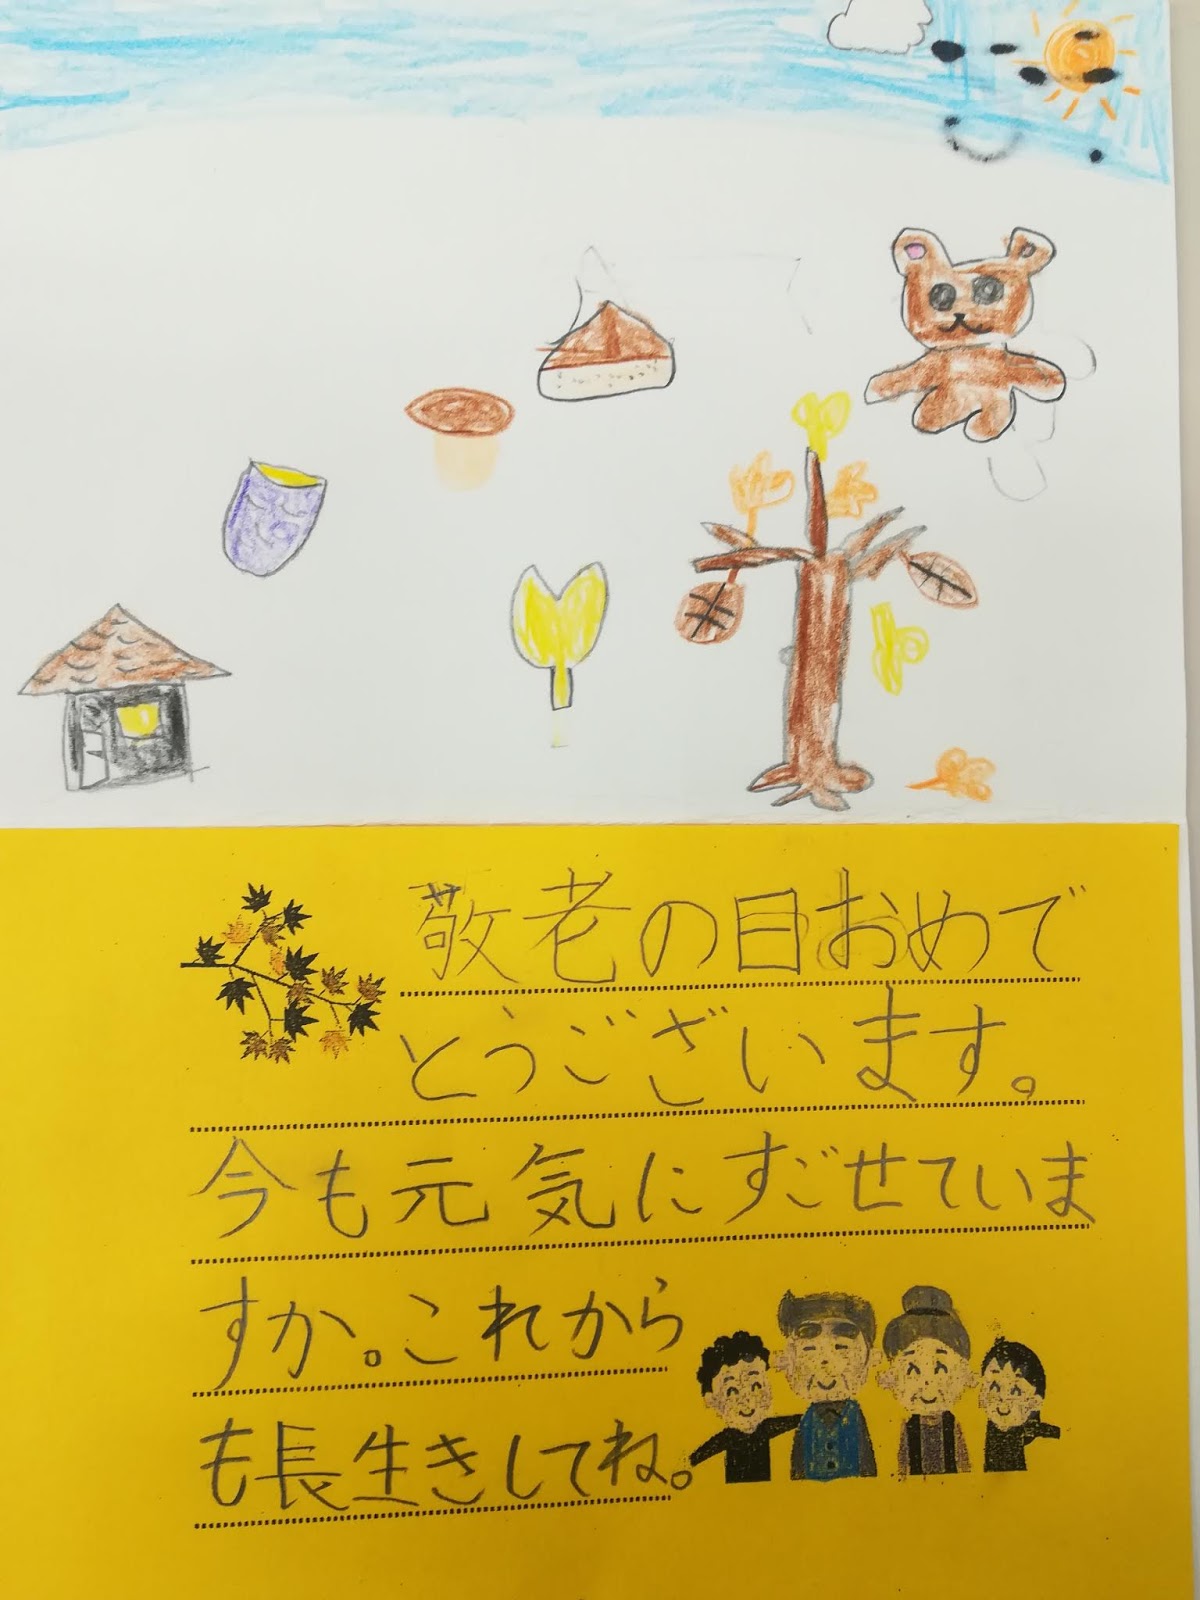 敬老の目おめで
とうございます。
今も元気にすごせていま
すか。これから
も長生きしてね。